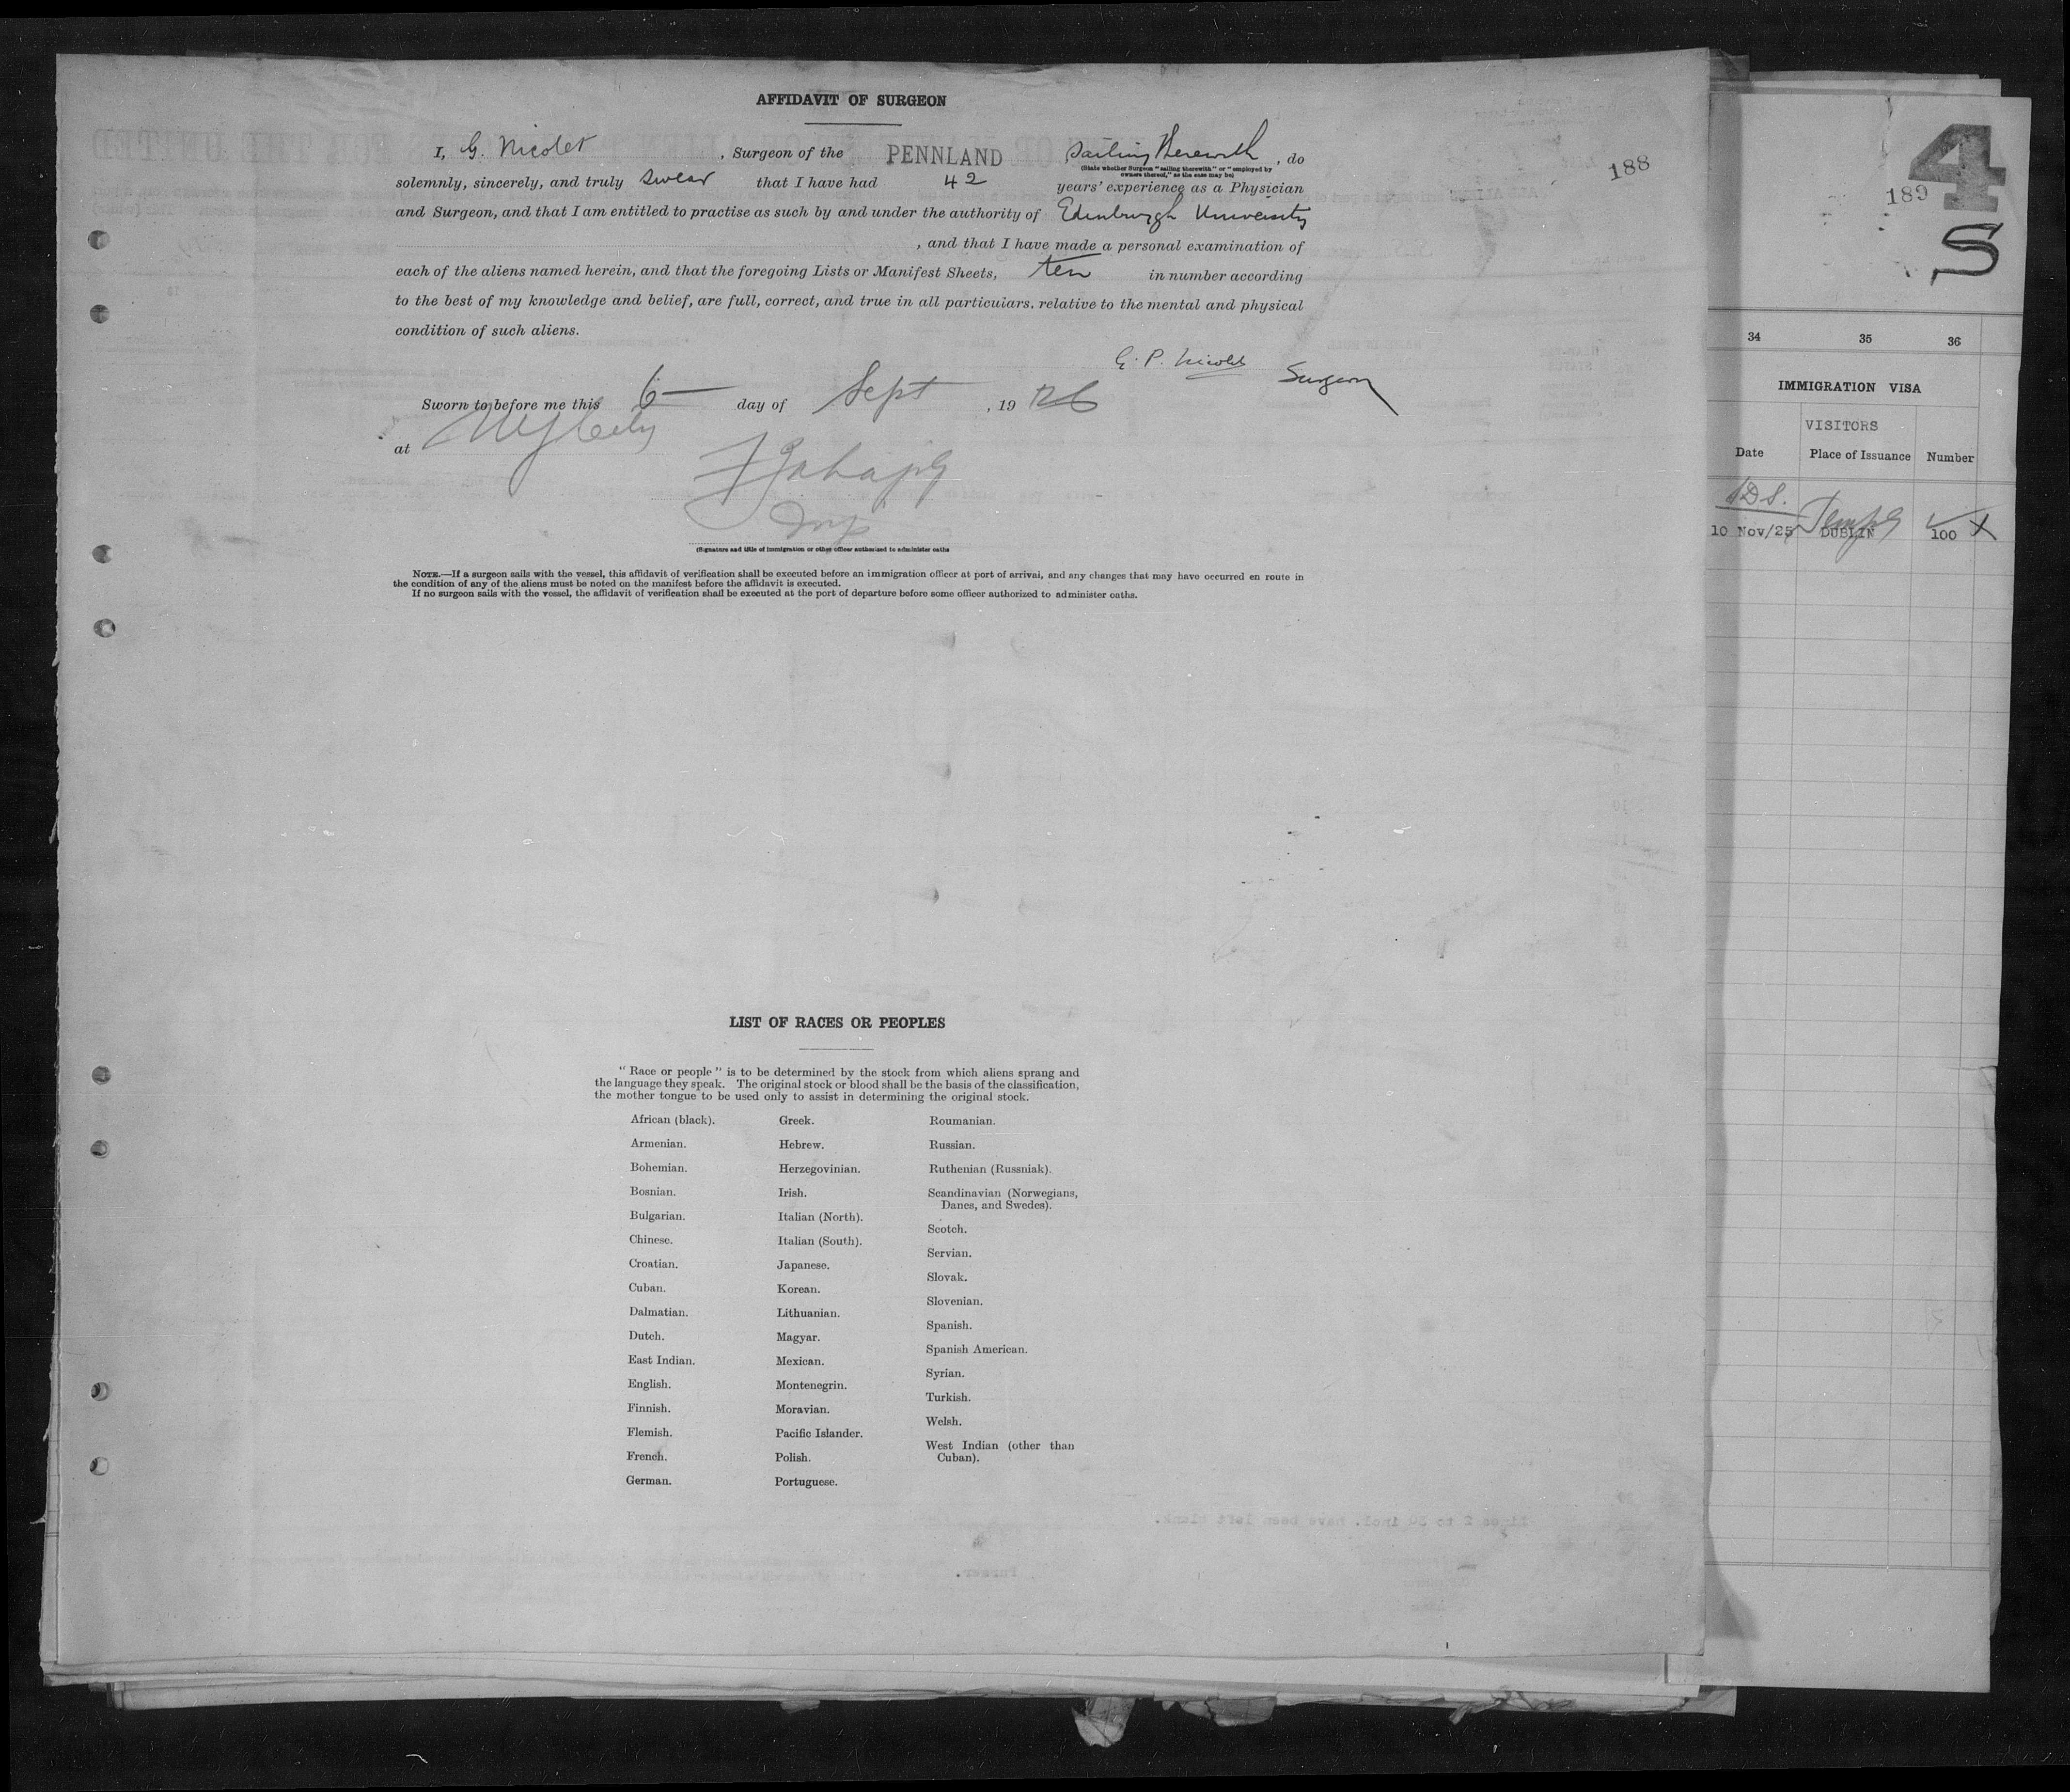 AFFIDAVIT OF SURGEON
I, G. Nicolet, Surgeon of the PENNLAND Sailing Therewith, do
(State whether Surgeon "sailing therewith" or "employed by
owners thereof," as the case may be)
solemnly, sincerely, and truly swear that I have had 42 years' experience as a Physician
and Surgeon, and that I am entitled to practise as such by and under the authority of Edinburgh University
, and that I have made a personal examination of
each of the aliens named herein, and that the foregoing Lists or Manifest Sheets, ten in number according
to the best of my knowledge and belief, are full, correct, and true in all particulars, relative to the mental and physical
condition of such aliens.
G. P. Nicolet Surgeon
Sworn to before me this 6 day of Sept, 1926
at NY City
Insp
(Signature and title of immigration or other officer authorized to administer oaths
NOTE.—If a surgeon sails with the vessel, this affidavit of verification shall be executed before an immigration officer at port of arrival, and any changes that may have occurred en route in
the condition of any of the aliens must be noted on the manifest before the affidavit is executed.
If no surgeon sails with the vessel, the affidavit of verification shall be executed at the port of departure before some officer authorized to administer oaths.
LIST OF RACES OR PEOPLES
"Race or people" is to be determined by the stock from which aliens sprang and
the language they speak. The original stock or blood shall be the basis of the classification,
the mother tongue to be used only to assist in determining the original stock.
African (black).
Armenian.
Bohemian.
Bosnian.
Bulgarian.
Chinese.
Croatian.
Cuban.
Dalmatian.
Dutch.
East Indian.
English.
Finnish.
Flemish.
French.
German.
Greek.
Hebrew.
Herzegovinian.
Irish.
Italian (North).
Italian (South).
Japanese.
Korean.
Lithuanian.
Magyar.
Mexican.
Montenegrin.
Moravian.
Pacific Islander.
Polish.
Portuguese.
Roumanian.
Russian.
Ruthenian (Russniak).
Scandinavian (Norwegians,
Danes, and Swedes).
Scotch.
Servian.
Slovak.
Slovenian.
Spanish.
Spanish American.
Syrian.
Turkish.
Welsh.
West Indian (other than
Cuban).
188
189
4
S
34 35 36
IMMIGRATION VISA
VISITORS
Date Place of Issuance Number
10 Nov/25 DUBLIN 100 X